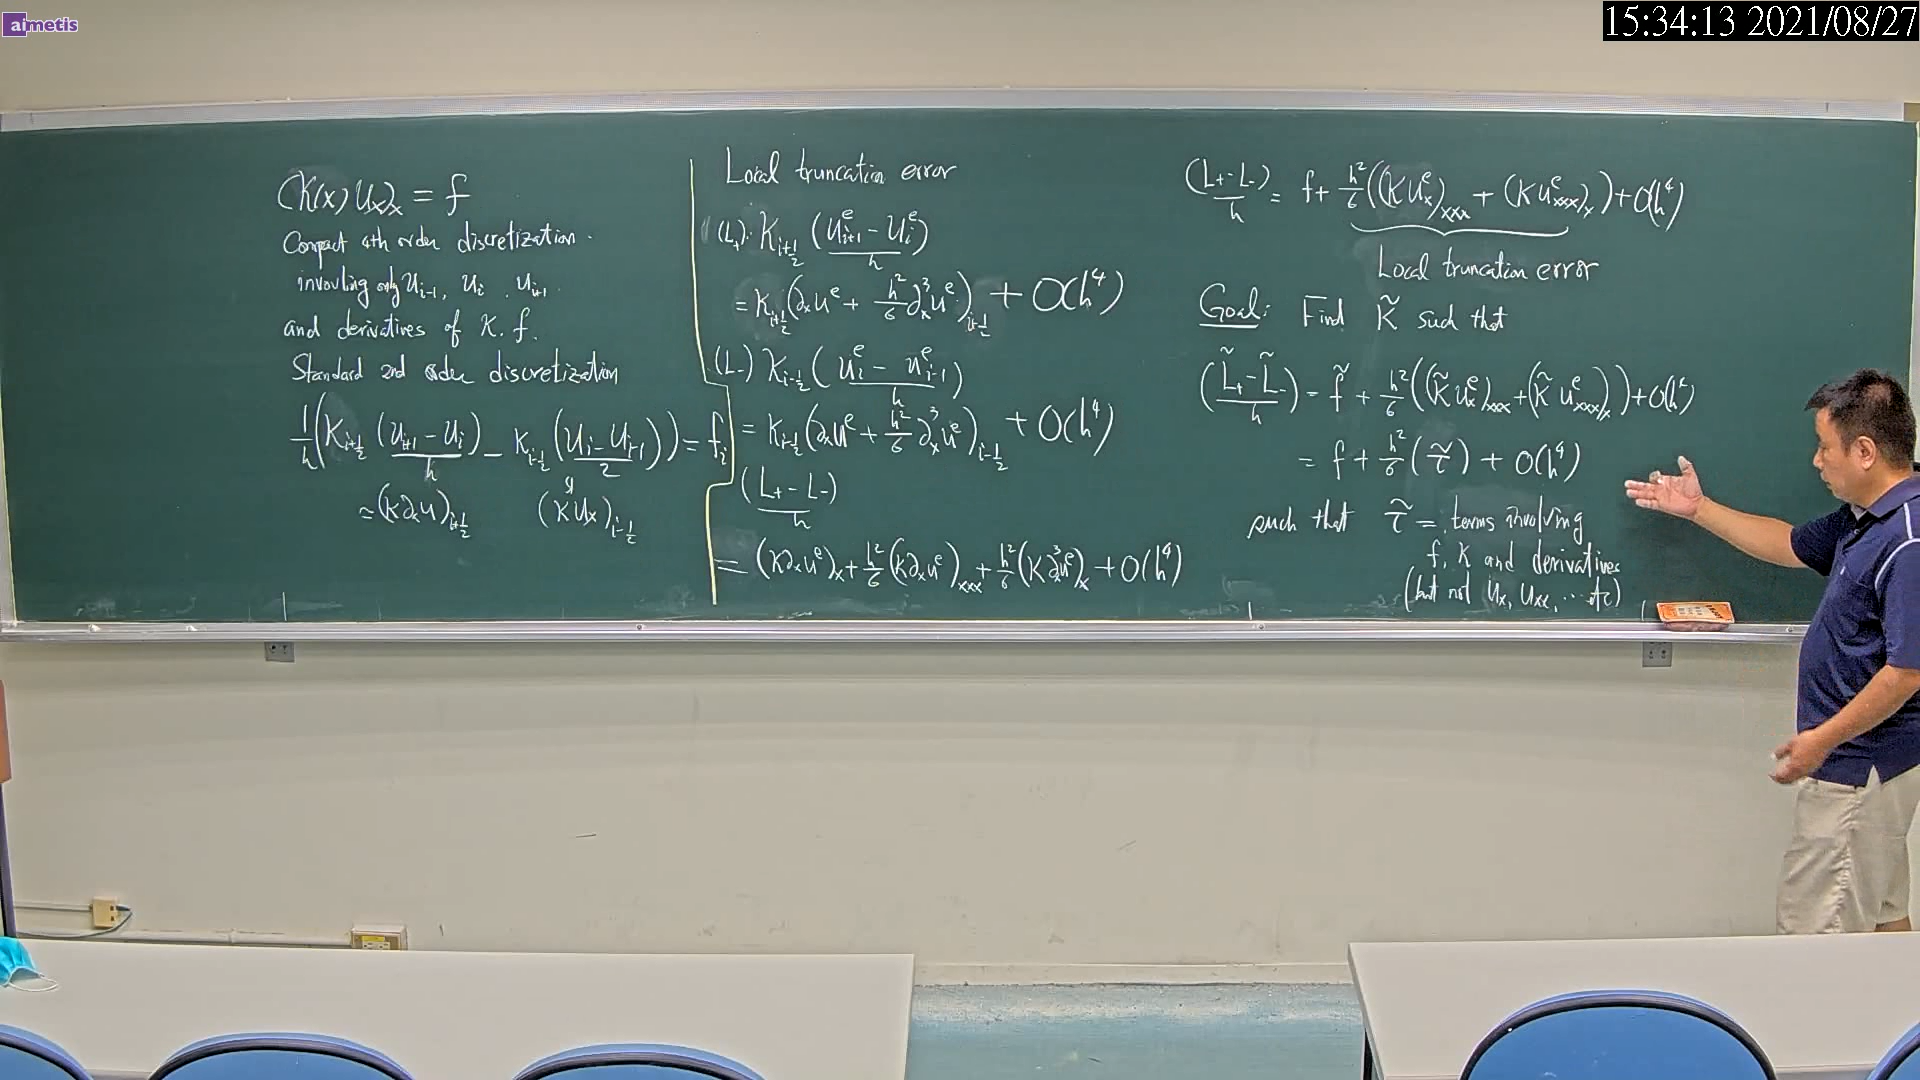 aimetis
15:34:13 2021/08/27
(K(x) Ux)x = f
Compact 4th order discretization.
involving only Ui-1, Ui, Ui+1
and derivatives of K. f.
Standard 2nd order discretization
1/h (K_{i+1/2} (U_{i+1} - U_i)/h - K_{i-1/2} (U_i - U_{i-1})/2) = f_i
≈ (K∂xU)_{i+1/2} (KUx)_{i-1/2}
Local truncation error
(L+). K_{i+1/2} (U^e_{i+1} - U^e_i)/h
= K_{i+1/2} (∂x u^e + h²/6 ∂x³u^e)_{i+1/2} + O(h⁴)
(L-) K_{i-1/2} (U^e_i - U^e_{i-1})/h
= K_{i-1/2} (∂x u^e + h²/6 ∂x³u^e)_{i-1/2} + O(h⁴)
(L+ - L-)/h
= (K∂x u^e)x + h²/6 (K∂x u^e)xxx + h²/6 (K∂x³u^e)x + O(h⁴)
(L+ - L-)/h = f + h²/6 ((K U^e_x)xxx + (K u^e_xxx)x) + O(h⁴)
Local truncation error
Goal: Find K̃ such that
(L̃+ - L̃-)/h = f̃ + h²/6 ((K̃ u^e_x)xxx + (K̃ u^e_xxx)x) + O(h⁴)
= f + h²/6 (τ̃) + O(h⁴)
such that τ̃ = terms involving
f, K and derivatives
(but not Ux, Uxx, ... etc)